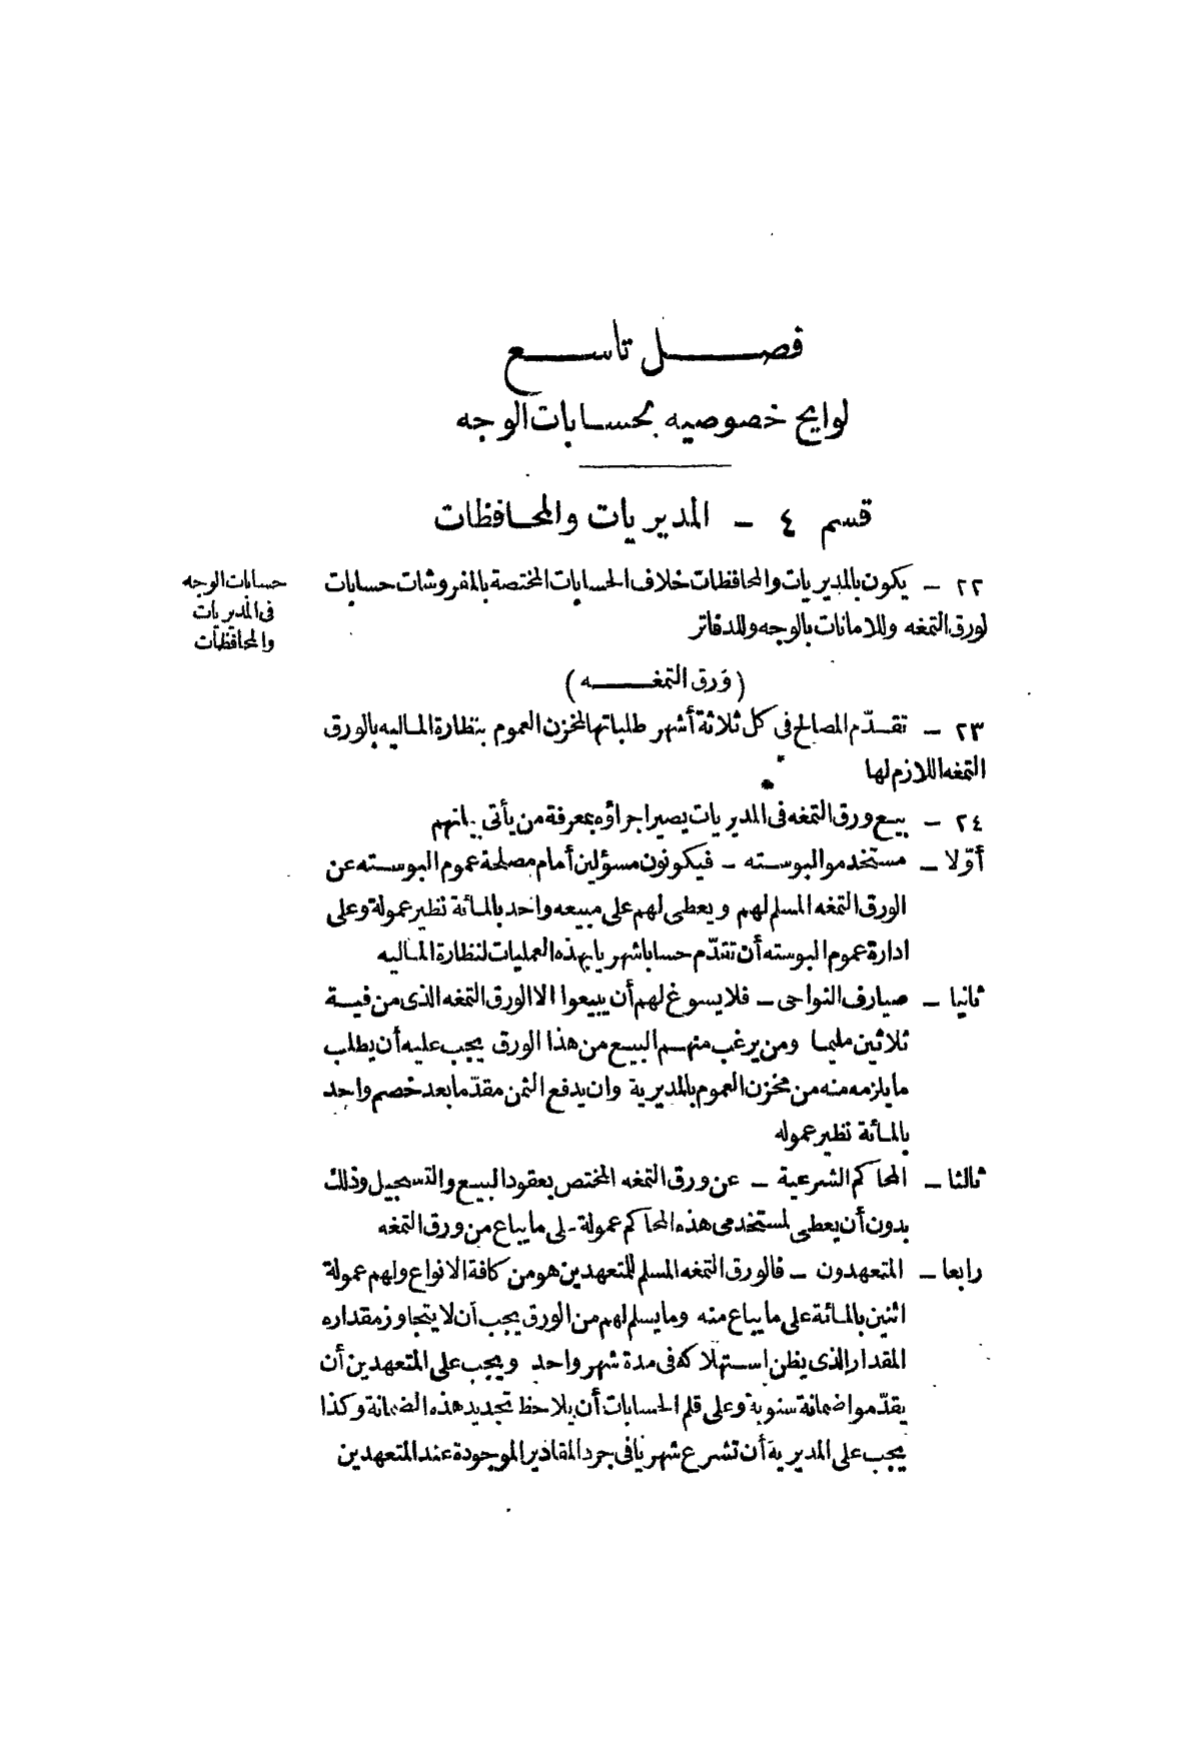 فصل تاسع
لوايح خصوصيه بحسابات الوجه
قسم ٤ - المديريات والمحافظات
حسابات الوجه
فى المديريات
والمحافظات
٢٢ - يكون بالمديريات والمحافظات خلاف الحسابات المختصة بالمفروشات حسابات
لورق التمغه وللامانات بالوجه وللدفاتر
(ورق التمغه)
٢٣ - تقدّم المصالح فى كل ثلاثة أشهر طلباتها لمخزن العموم بنظارة الماليه بالورق
التمغه اللازم لها
٢٤ - بيع ورق التمغه فى المديريات يصير اجراؤه بمعرفة من يأتى بيانهم
أوّلا - مستخدمو البوسته - فيكونون مسؤلين أمام مصلحة عموم البوسته عن
الورق التمغه المسلم لهم ويعطى لهم على مبيعه واحد بالمائة نظير عمولة وعلى
ادارة عموم البوسته أن تقدّم حسابا شهريا بهذه العمليات لنظارة الماليه
ثانيا - صيارف النواحى - فلا يسوغ لهم أن يبيعوا الا الورق التمغه الذى من فية
ثلاثين مليما ومن يرغب منهم البيع من هذا الورق يجب عليه أن يطلب
ما يلزمه منه من مخزن العموم بالمديرية وان يدفع الثمن مقدّما بعد خصم واحد
بالمائة نظير عموله
ثالثا - المحاكم الشرعية - عن ورق التمغه المختص بعقود البيع والتسجيل وذلك
بدون أن يعطى لمستخدمى هذه المحاكم عمولة على ما يباع من ورق التمغه
رابعا - المتعهدون - فالورق التمغه المسلم للمتعهدين هو من كافة الانواع ولهم عمولة
اثنين بالمائة على ما يباع منه وما يسلم لهم من الورق يجب أن لا يتجاوز مقداره
المقدار الذى يظن استهلاكه فى مدة شهر واحد ويجب على المتعهدين أن
يقدّموا ضمانة سنوية وعلى قلم الحسابات أن يلاحظ تجديد هذه الضمانة وكذا
يجب على المديرية أن تشرع شهريا فى جرد المقادير الموجودة عند المتعهدين